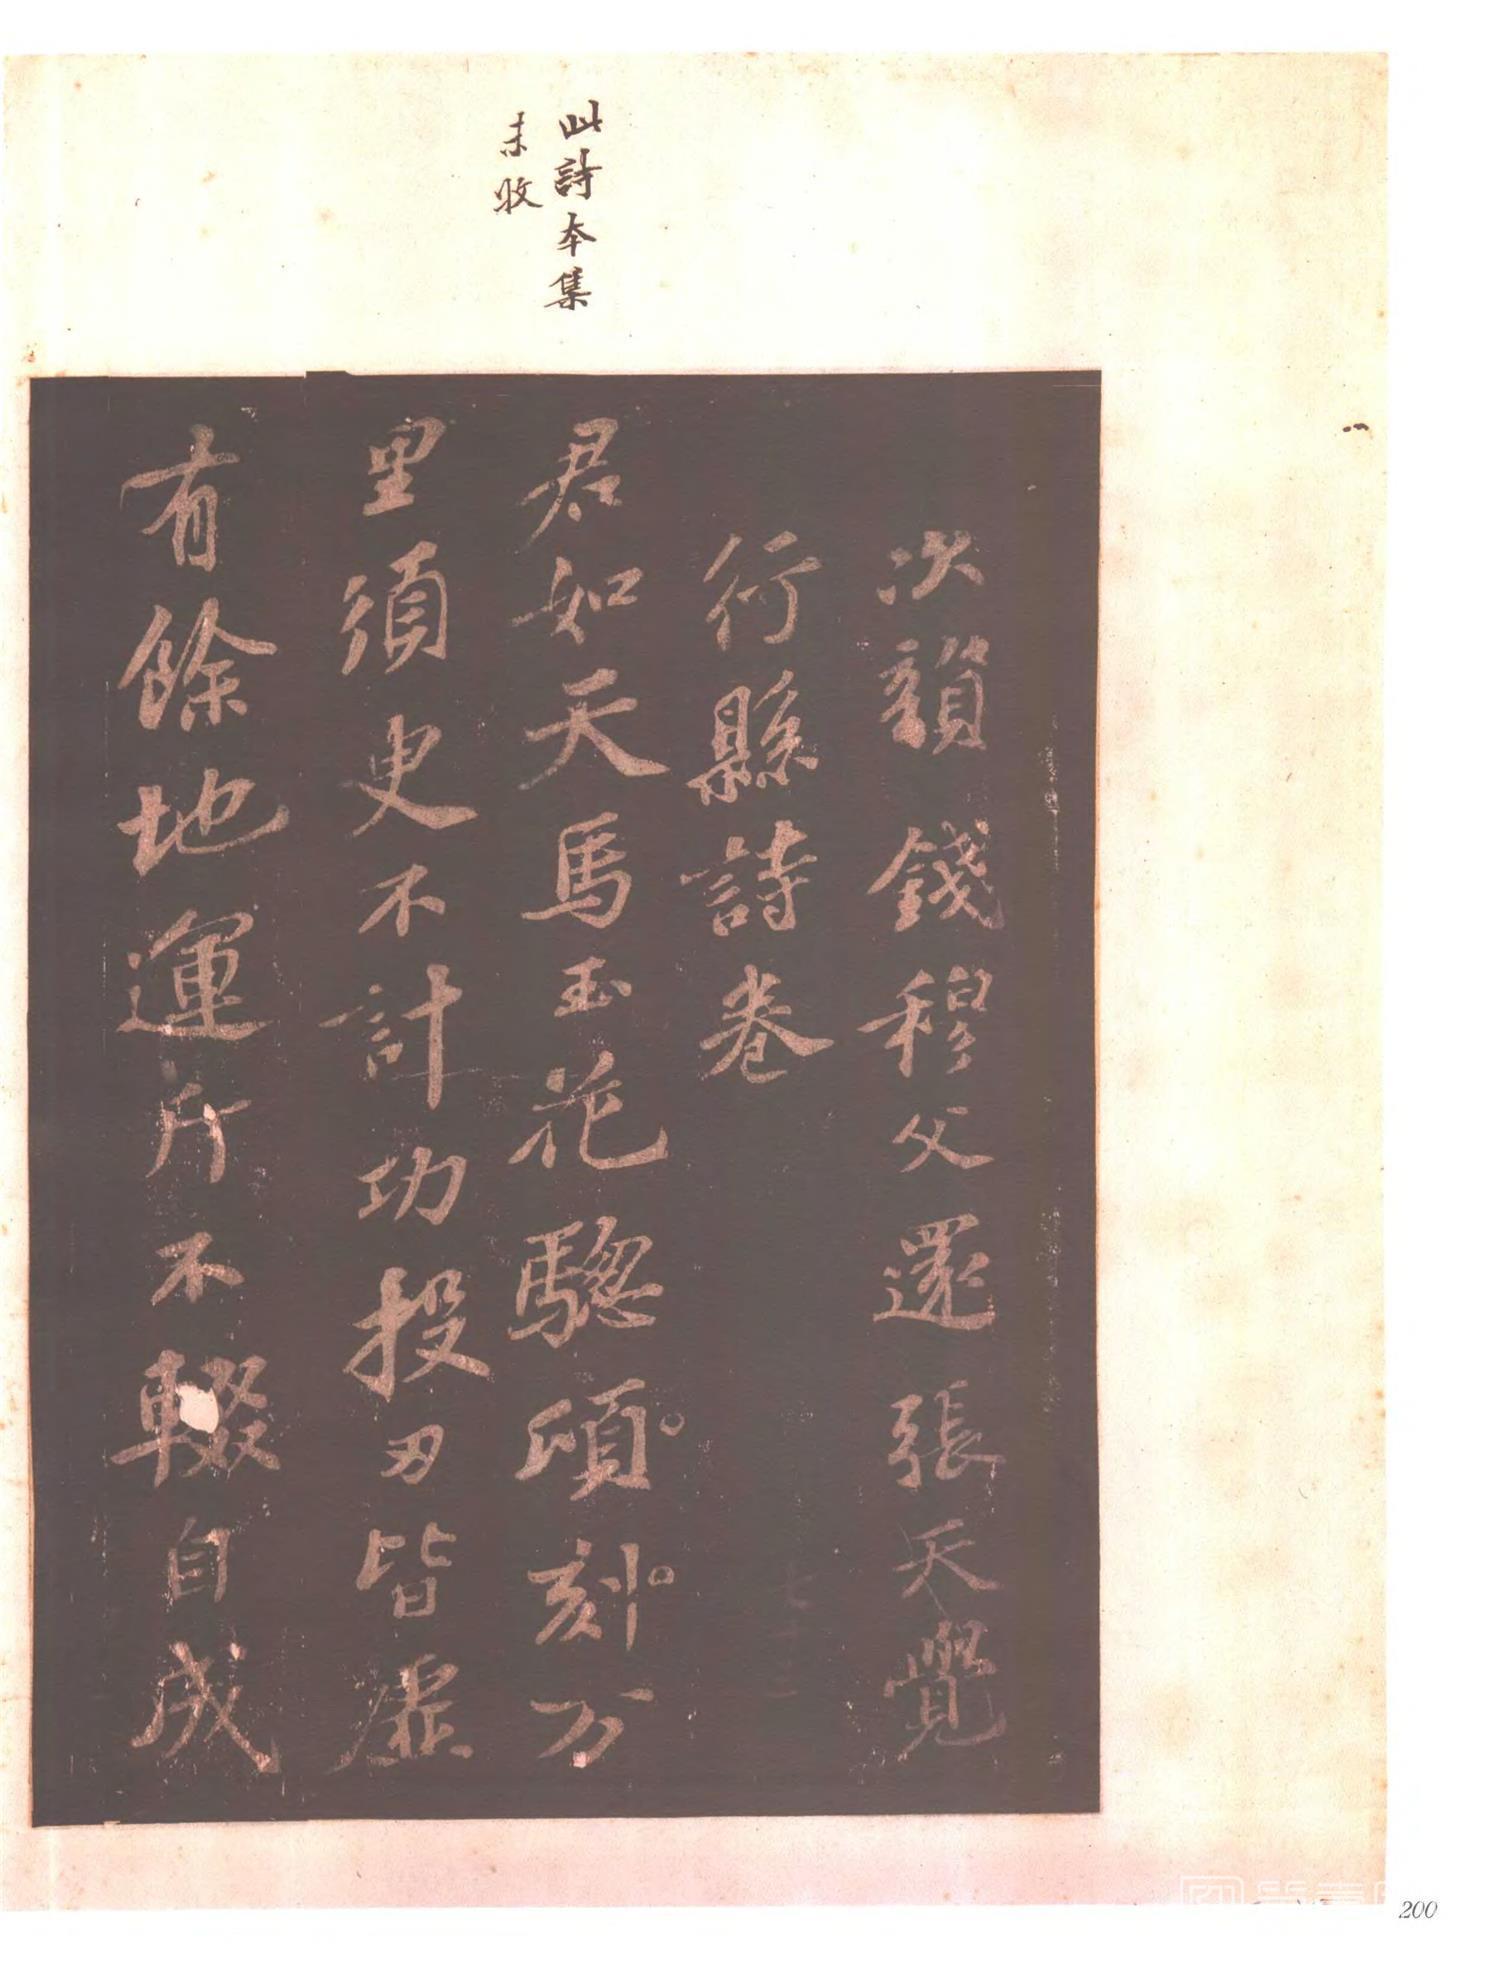 此詩本集
未收
次韻錢穆父還張天覺
行縣詩卷
君如天馬玉花驄頃刻万
里須臾不計功投刃皆虛
有餘地運斤不輟自成
七十二
200